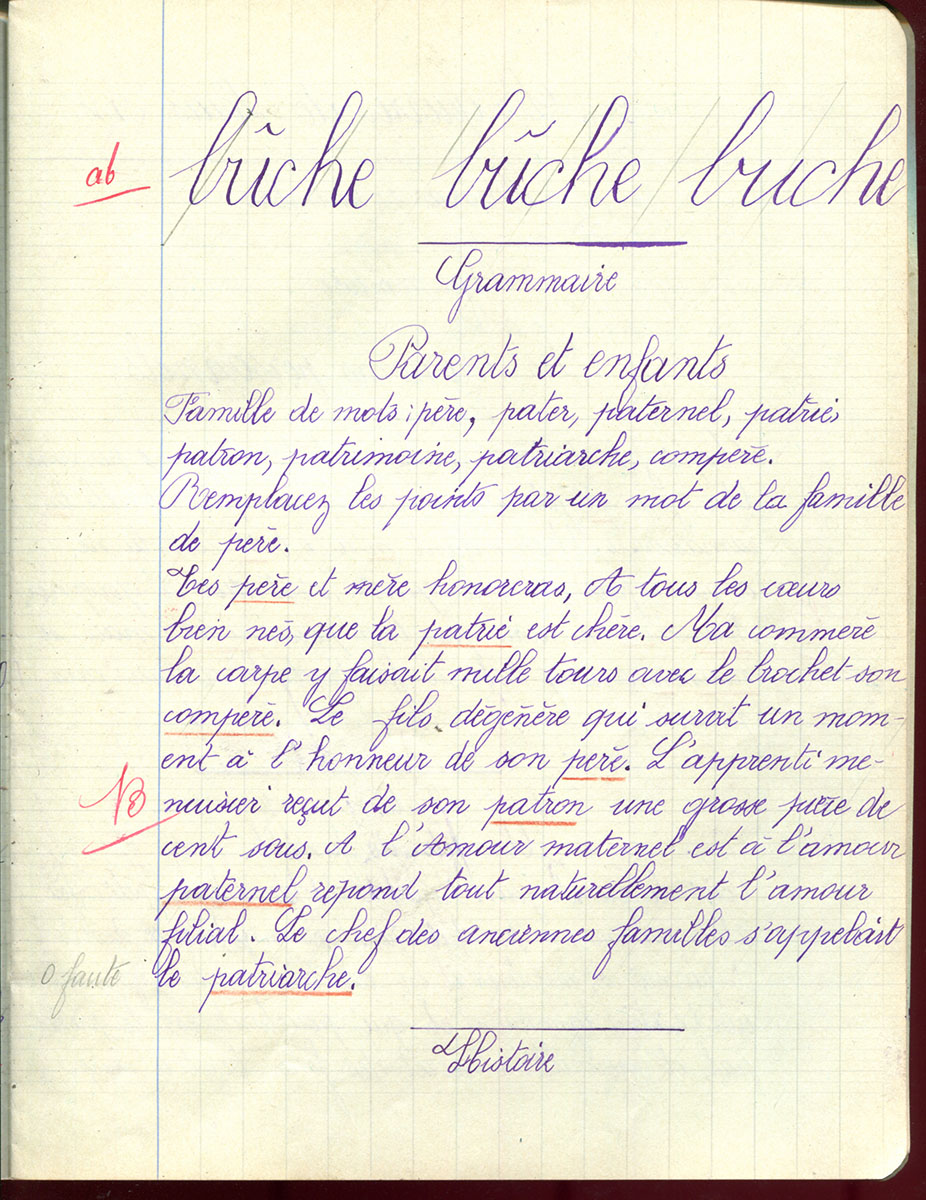 ab
bûche bûche buche
Grammaire
Parents et enfants
Famille de mots : père, pater, paternel, patrie,
patron, patrimoine, patriarche, compère.
Remplacez les points par un mot de la famille
de père.
Tes père et mère honoreras, A tous les cœurs
bien nés, que la patrie est chère. Ma commère
la carpe y faisait mille tours avec le brochet son
compère. Le fils dégénère qui survit un mom-
ent à l'honneur de son père. L'apprenti me-
nuisier reçut de son patron une grosse pièce de
cent sous. A l'Amour maternel est à l'amour
paternel répond tout naturellement l'amour
filial. Le chef des anciennes familles s'appelait
le patriarche.
B
0 faute
Histoire